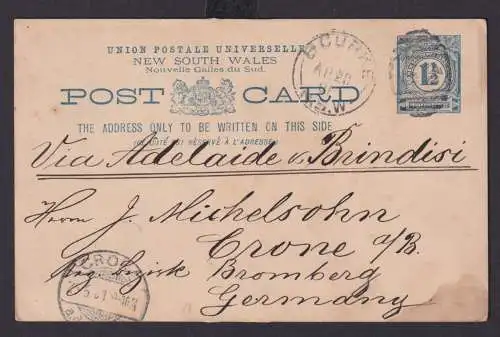 UNION POSTALE UNIVERSELLE
NEW SOUTH WALES
Nouvelle Galles du Sud.
POST CARD
THE ADDRESS ONLY TO BE WRITTEN ON THIS SIDE
(CE CÔTÉ EST RÉSERVÉ À L'ADRESSE)
BOURKE
AP 29
N.S.W
1½
Via Adelaide & Brindisi
Herrn J. Michelsohn
Crone a/B.
Bromberg
Germany
CRONE